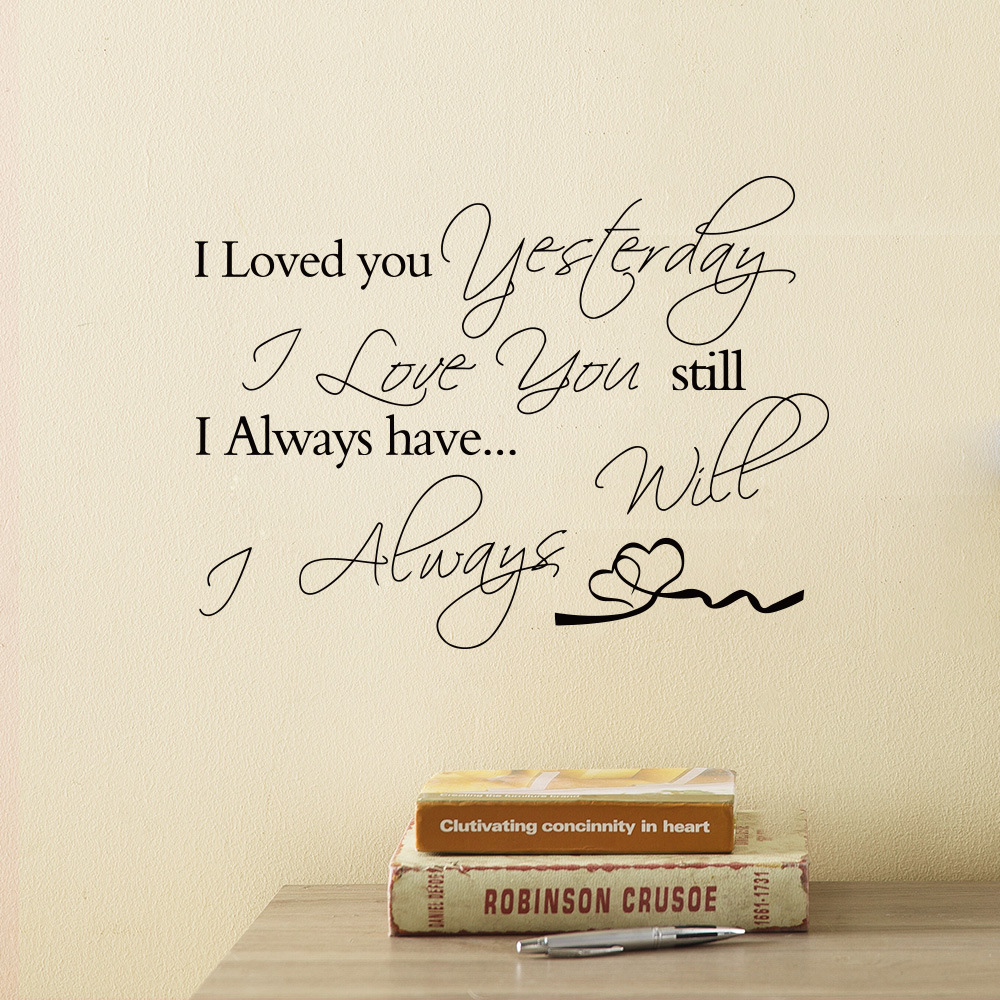 I Loved you Yesterday
I Love You still
I Always have...
I Always Will
Clutivating concinnity in heart
DANIEL DEFOE
ROBINSON CRUSOE
1661-1731